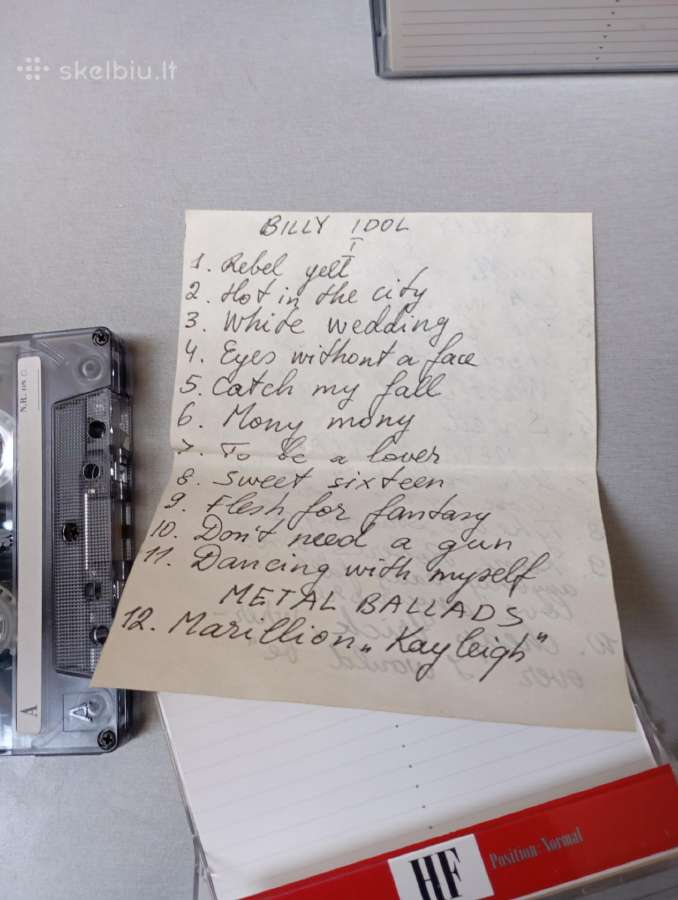 skelbiu.lt
BILLY IDOL
I
1. Rebel yell
2. Hot in the city
3. White wedding
4. Eyes without a face
5. Catch my fall
6. Mony mony
7. To be a lover
8. Sweet sixteen
9. Flesh for fantasy
10. Don't need a gun
11. Dancing with myself
METAL BALLADS
12. Marillion „Kayleigh"
N.R.
A
A
HF
Position·Normal